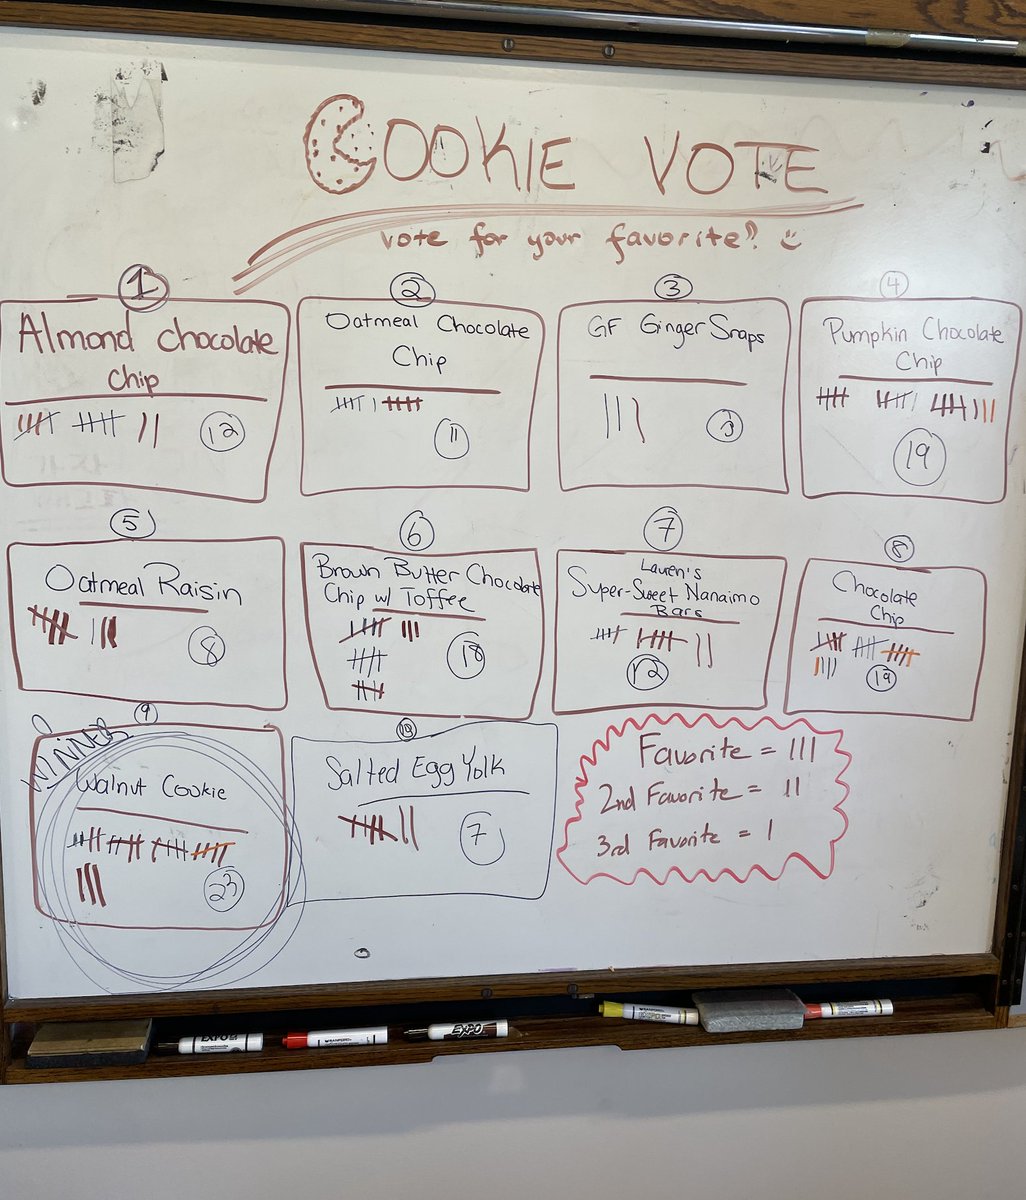 COOKIE VOTE
vote for your favorite!
1
Almond chocolate
chip
12
2
Oatmeal Chocolate
Chip
11
3
GF Ginger Snaps
3
4
Pumpkin Chocolate
Chip
19
5
Oatmeal Raisin
8
6
Brown Butter Chocolate
Chip w/ Toffee
18
7
Lauren's
Super-Sweet Nanaimo
Bars
12
8
Chocolate
Chip
19
9
WINNER
Walnut Cookie
23
10
Salted Egg Yolk
7
Favorite = |||
2nd Favorite = ||
3rd Favorite = |
EXPO
EXPO